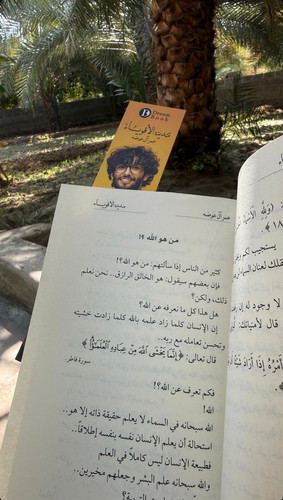 Dream
Book
مدينة الأقوياء
عمر آل عوضه
مدينة الأقوياء
عمر آل عوضه
من هو الله ؟!
كثير من الناس إذا سألتهم: من هو الله؟!
فإن بعضهم سيقول: هو الخالق الرازق.. نحن نعلم
ذلك، ولكن؟
هل هذا كل ما نعرفه عن الله؟
إن الإنسان كلما زاد علمه بالله كلما زادت خشيته
وتحسن تعامله مع ربه..
قال تعالى: ﴿إِنَّمَا يَخْشَى اللَّهَ مِنْ عِبَادِهِ الْعُلَمَاءُ﴾
سورة فاطر.
فكم تعرف عن الله؟!
الله!
الله سبحانه في السماء لا يعلم حقيقة ذاته إلا هو..
استحالة أن يعلم الإنسان نفسه بنفسه إطلاقاً..
فطبيعة الإنسان ليس كاملاً في العلم
والله سبحانه علم البشر وجعلهم مخيرين..
يستجيب لكم
لا وجود له إن
قال لأمنياتك: